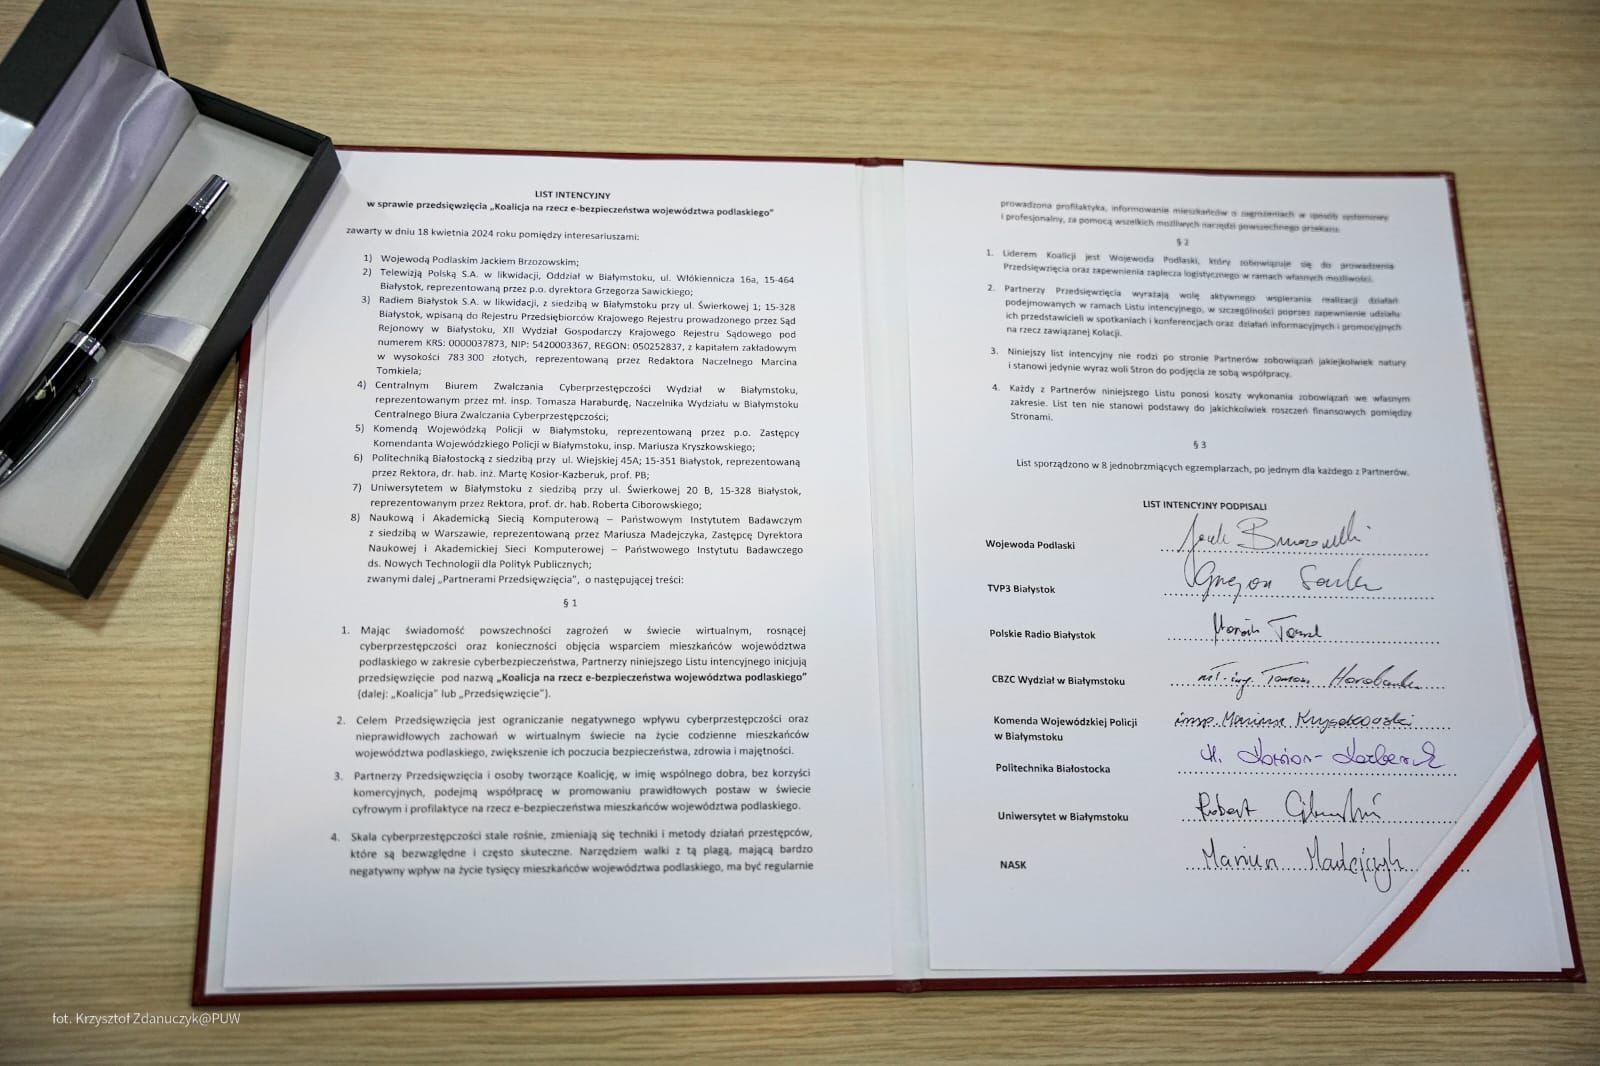 LIST INTENCYJNY
w sprawie przedsięwzięcia „Koalicja na rzecz e-bezpieczeństwa województwa podlaskiego”
zawarty w dniu 18 kwietnia 2024 roku pomiędzy interesariuszami:
1) Wojewodą Podlaskim Jackiem Brzozowskim;
2) Telewizją Polską S.A. w likwidacji, Oddział w Białymstoku, ul. Włókiennicza 16a, 15-464
Białystok, reprezentowaną przez p.o. dyrektora Grzegorza Sawickiego;
3) Radiem Białystok S.A. w likwidacji, z siedzibą w Białymstoku przy ul. Świerkowej 1; 15-328
Białystok, wpisaną do Rejestru Przedsiębiorców Krajowego Rejestru prowadzonego przez Sąd
Rejonowy w Białymstoku, XII Wydział Gospodarczy Krajowego Rejestru Sądowego pod
numerem KRS: 0000037873, NIP: 5420003367, REGON: 050252837, z kapitałem zakładowym
w wysokości 783 300 złotych, reprezentowaną przez Redaktora Naczelnego Marcina
Tomkiela;
4) Centralnym Biurem Zwalczania Cyberprzestępczości Wydział w Białymstoku,
reprezentowanym przez mł. insp. Tomasza Haraburdę, Naczelnika Wydziału w Białymstoku
Centralnego Biura Zwalczania Cyberprzestępczości;
5) Komendą Wojewódzką Policji w Białymstoku, reprezentowaną przez p.o. Zastępcy
Komendanta Wojewódzkiego Policji w Białymstoku, insp. Mariusza Kryszkowskiego;
6) Politechniką Białostocką z siedzibą przy ul. Wiejskiej 45A; 15-351 Białystok, reprezentowaną
przez Rektora, dr. hab. inż. Martę Kosior-Kazberuk, prof. PB;
7) Uniwersytetem w Białymstoku z siedzibą przy ul. Świerkowej 20 B, 15-328 Białystok,
reprezentowanym przez Rektora, prof. dr. hab. Roberta Ciborowskiego;
8) Naukową i Akademicką Siecią Komputerową – Państwowym Instytutem Badawczym
z siedzibą w Warszawie, reprezentowaną przez Mariusza Madejczyka, Zastępcę Dyrektora
Naukowej i Akademickiej Sieci Komputerowej – Państwowego Instytutu Badawczego
ds. Nowych Technologii dla Polityk Publicznych;
zwanymi dalej „Partnerami Przedsięwzięcia”, o następującej treści:
§ 1
1. Mając świadomość powszechności zagrożeń w świecie wirtualnym, rosnącej
cyberprzestępczości oraz konieczności objęcia wsparciem mieszkańców województwa
podlaskiego w zakresie cyberbezpieczeństwa, Partnerzy niniejszego Listu intencyjnego inicjują
przedsięwzięcie pod nazwą „Koalicja na rzecz e-bezpieczeństwa województwa podlaskiego”
(dalej: „Koalicja” lub „Przedsięwzięcie”).
2. Celem Przedsięwzięcia jest ograniczanie negatywnego wpływu cyberprzestępczości oraz
nieprawidłowych zachowań w wirtualnym świecie na życie codzienne mieszkańców
województwa podlaskiego, zwiększenie ich poczucia bezpieczeństwa, zdrowia i majętności.
3. Partnerzy Przedsięwzięcia i osoby tworzące Koalicję, w imię wspólnego dobra, bez korzyści
komercyjnych, podejmą współpracę w promowaniu prawidłowych postaw w świecie
cyfrowym i profilaktyce na rzecz e-bezpieczeństwa mieszkańców województwa podlaskiego.
4. Skala cyberprzestępczości stale rośnie, zmieniają się techniki i metody działań przestępców,
które są bezwzględne i często skuteczne. Narzędziem walki z tą plagą, mającą bardzo
negatywny wpływ na życie tysięcy mieszkańców województwa podlaskiego, ma być regularnie
prowadzona profilaktyka, informowanie mieszkańców o zagrożeniach w sposób systemowy
i profesjonalny, za pomocą wszelkich możliwych narzędzi powszechnego przekazu.
§ 2
1. Liderem Koalicji jest Wojewoda Podlaski, który zobowiązuje się do prowadzenia
Przedsięwzięcia oraz zapewnienia zaplecza logistycznego w ramach własnych możliwości.
2. Partnerzy Przedsięwzięcia wyrażają wolę aktywnego wspierania realizacji działań
podejmowanych w ramach Listu intencyjnego, w szczególności poprzez zapewnienie udziału
ich przedstawicieli w spotkaniach i konferencjach oraz działań informacyjnych i promocyjnych
na rzecz zawiązanej Kolacji.
3. Niniejszy list intencyjny nie rodzi po stronie Partnerów zobowiązań jakiejkolwiek natury
i stanowi jedynie wyraz woli Stron do podjęcia ze sobą współpracy.
4. Każdy z Partnerów niniejszego Listu ponosi koszty wykonania zobowiązań we własnym
zakresie. List ten nie stanowi podstawy do jakichkolwiek roszczeń finansowych pomiędzy
Stronami.
§ 3
List sporządzono w 8 jednobrzmiących egzemplarzach, po jednym dla każdego z Partnerów.
LIST INTENCYJNY PODPISALI
Wojewoda Podlaski Jacek Brzozowski
TVP3 Białystok Grzegorz
Polskie Radio Białystok Marcin
CBZC Wydział w Białymstoku mł. insp. Tomasz Haraburda
Komenda Wojewódzkiej Policji insp. Mariusz Kryszkowski
w Białymstoku
Politechnika Białostocka M. Kosior-Kazberuk
Uniwersytet w Białymstoku Robert Ciborowski
NASK Mariusz Madejczyk
fot. Krzysztof Zdanuczyk@PUW